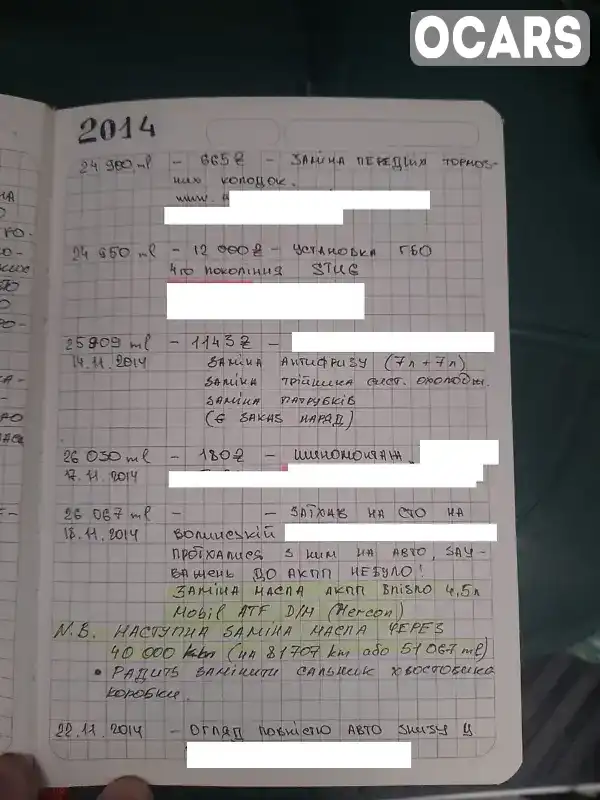 OCARS
2014
24 900 ml - 665 ₴ - ЗАМІНА ПЕРЕДНІХ ТОРМОЗ-
НИХ КОЛОДОК.
www.
24 950 ml - 12 000 ₴ - УСТАНОВКА ГБО
4го ПОКОЛІННЯ STAG
25909 ml - 1143 ₴ -
14.11.2014 ЗАМІНА АНТИФРИЗУ (7л + 7л)
ЗАМІНА ТРІЙНИКА СИСТ. ОХОЛОДЖ.
ЗАМІНА ПАТРУБКІВ
(Є ЗАКАЗ НАРЯД)
26 030 ml - 180 ₴ - ШИНОМОНТАЖ.
17.11.2014
26 067 ml - - ЗАЇХАВ НА СТО НА
18.11.2014 ВОЛИНСЬКІЙ
ПРОЇХАЛИСЯ З НИМ НА АВТО, ЗАУ-
ВАЖЕНЬ ДО АКПП НЕБУЛО!
ЗАМІНА МАСЛА АКПП ВЛІЗЛО 4,5л
Mobil ATF D/M (Mercon)
N.B. НАСТУПНА ЗАМІНА МАСЛА ЧЕРЕЗ
40 000 km (на 81707 km або 51 067 ml)
• РАДИТЬ ЗАМІНИТИ САЛЬНИК ХВОСТОВИКА
КОРОБКИ.
22.11.2014 - ОГЛЯД ПОВНІСТЮ АВТО ЗНИЗУ У